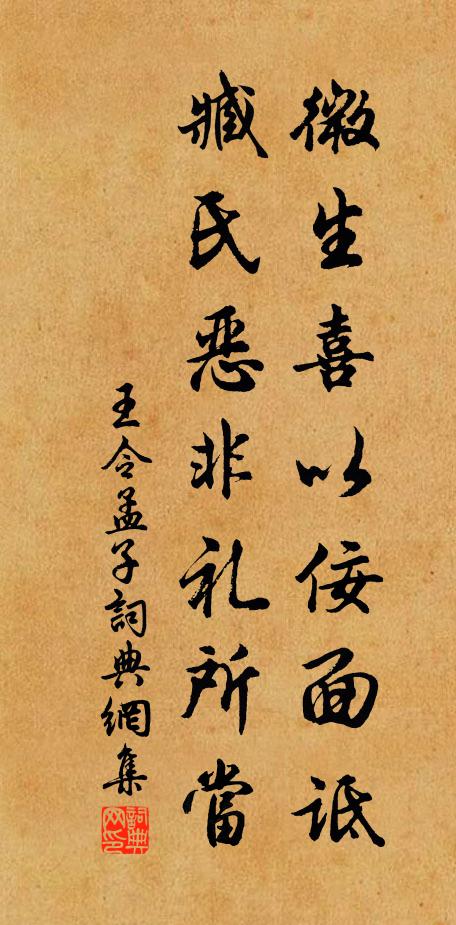 微生喜以佞面诋
臧氏恶非礼所當
王令孟子詞典網集
詞典网印